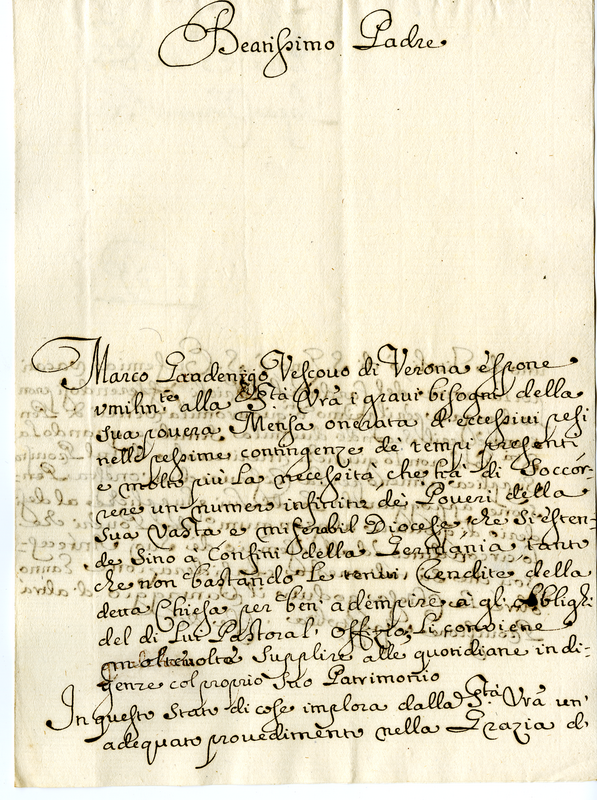 Beatissimo Padre
Marco Gradenigo Vescovo di Verona espone
umilm.te alla S.tà Vrã i gravi bisogni della
sua povera Mensa onerata d'eccessivi pesi
nelle pessime contingenze de' tempi presenti
e molto più la necessità che hà di soccor-
rere un numero infinito de' Poveri della
sua vasta e miserabil Diocese che si esten-
de sino à Confini della Germania tanto
che non bastando le tenui Rendite della
detta Chiesa per ben adempire à gli obblighi
del di Lui Pastoral' offizio li conviene
molte volte supplire alle quotidiane indi-
genze col proprio suo Patrimonio
In questo stato di cose implora dalla S.tà Vrã un'
adequato provedimento nella Grazia d'